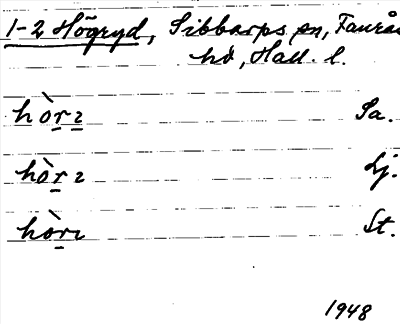 1-2 Högryd, Sibbarps sn, Faurås
hd, Hall. l.
hò̱rı Sa.
hò̱rı Lj.
hò̱rı St.
1948